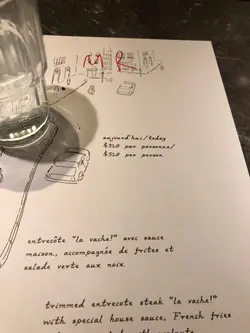 aujourd'hui/today
$32.0 per personne/
$32.0 per person
entrecôte "la vache!" avec sauce
maison, accompagnée de frites et
salade verte aux noix
trimmed entrecote steak "la vache!"
with special house sauce, French fries